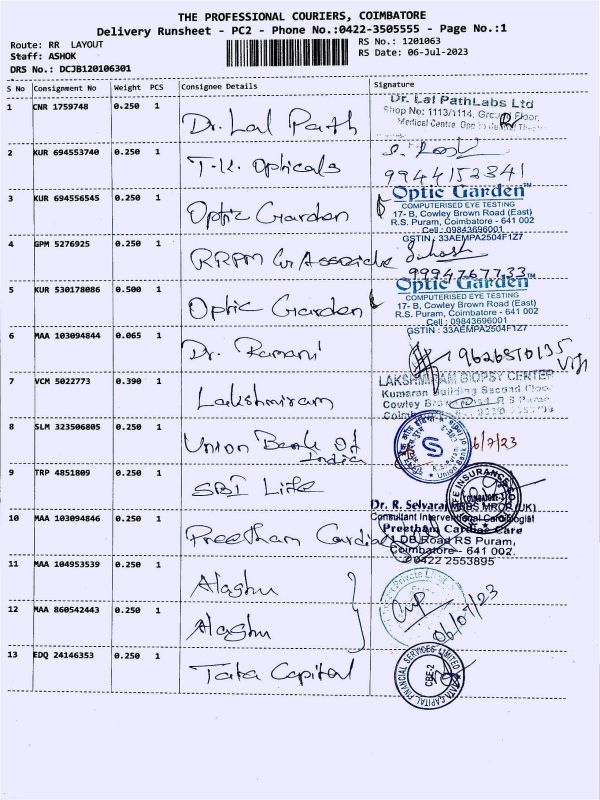 THE PROFESSIONAL COURIERS, COIMBATORE
Delivery Runsheet - PC2 - Phone No.:0422-3505555 - Page No.:1
Route: RR LAYOUT RS No.: 1201063
Staff: ASHOK RS Date: 06-Jul-2023
DRS No.: DCJB120106301
S No Consignment No Weight PCS Consignee Details Signature
1 CNR 1759748 0.250 1 Dr. Lal Path
Dr. Lal PathLabs Ltd
Shop No: 1113/1114, Ground Floor,
Medical Centre
2 KUR 694553740 0.250 1 T.K. Opticals
9944152841
3 KUR 694556545 0.250 1 Optic Garden
Optic Garden™
COMPUTERISED EYE TESTING
17- B, Cowley Brown Road (East)
R.S. Puram, Coimbatore - 641 002
Cell : 09843696001
GSTIN : 33AEMPA2504F1Z7
4 GPM 5276925 0.250 1 RRPM & Associate
9994767733
5 KUR 530178086 0.500 1 Optic Garden
Optic Garden™
COMPUTERISED EYE TESTING
17- B, Cowley Brown Road (East)
R.S. Puram, Coimbatore - 641 002
Cell : 09843696001
GSTIN : 33AEMPA2504F1Z7
6 MAA 103094844 0.065 1 Dr. Ramani
7 VCM 5022773 0.390 1 Lakshmiram
LAKSHMIRAM BIOPSY CENTER
Kumaran Building Second Floor
Cowley Brown Road R S Puram
8 SLM 323506805 0.250 1 Union Bank Of
India
6/7/23
9 TRP 4851809 0.250 1 SBI Life
LIFE INSURANCE CO
COIMBATORE
10 MAA 103094846 0.250 1 Preetham Cardiac
Dr. R. Selvaraj MBBS MRCP (UK)
Consultant Interventional Cardiologist
Preetham Cardiac Care
LDB Road RS Puram,
Coimbatore - 641 002
0422 2553895
11 MAA 104953539 0.250 1 Alaghu
12 MAA 860542443 0.250 1 Alaghu
06/07/23
13 EDQ 24146353 0.250 1 Tata Capital
TATA CAPITAL FINANCIAL SERVICES LIMITED
CBE-2